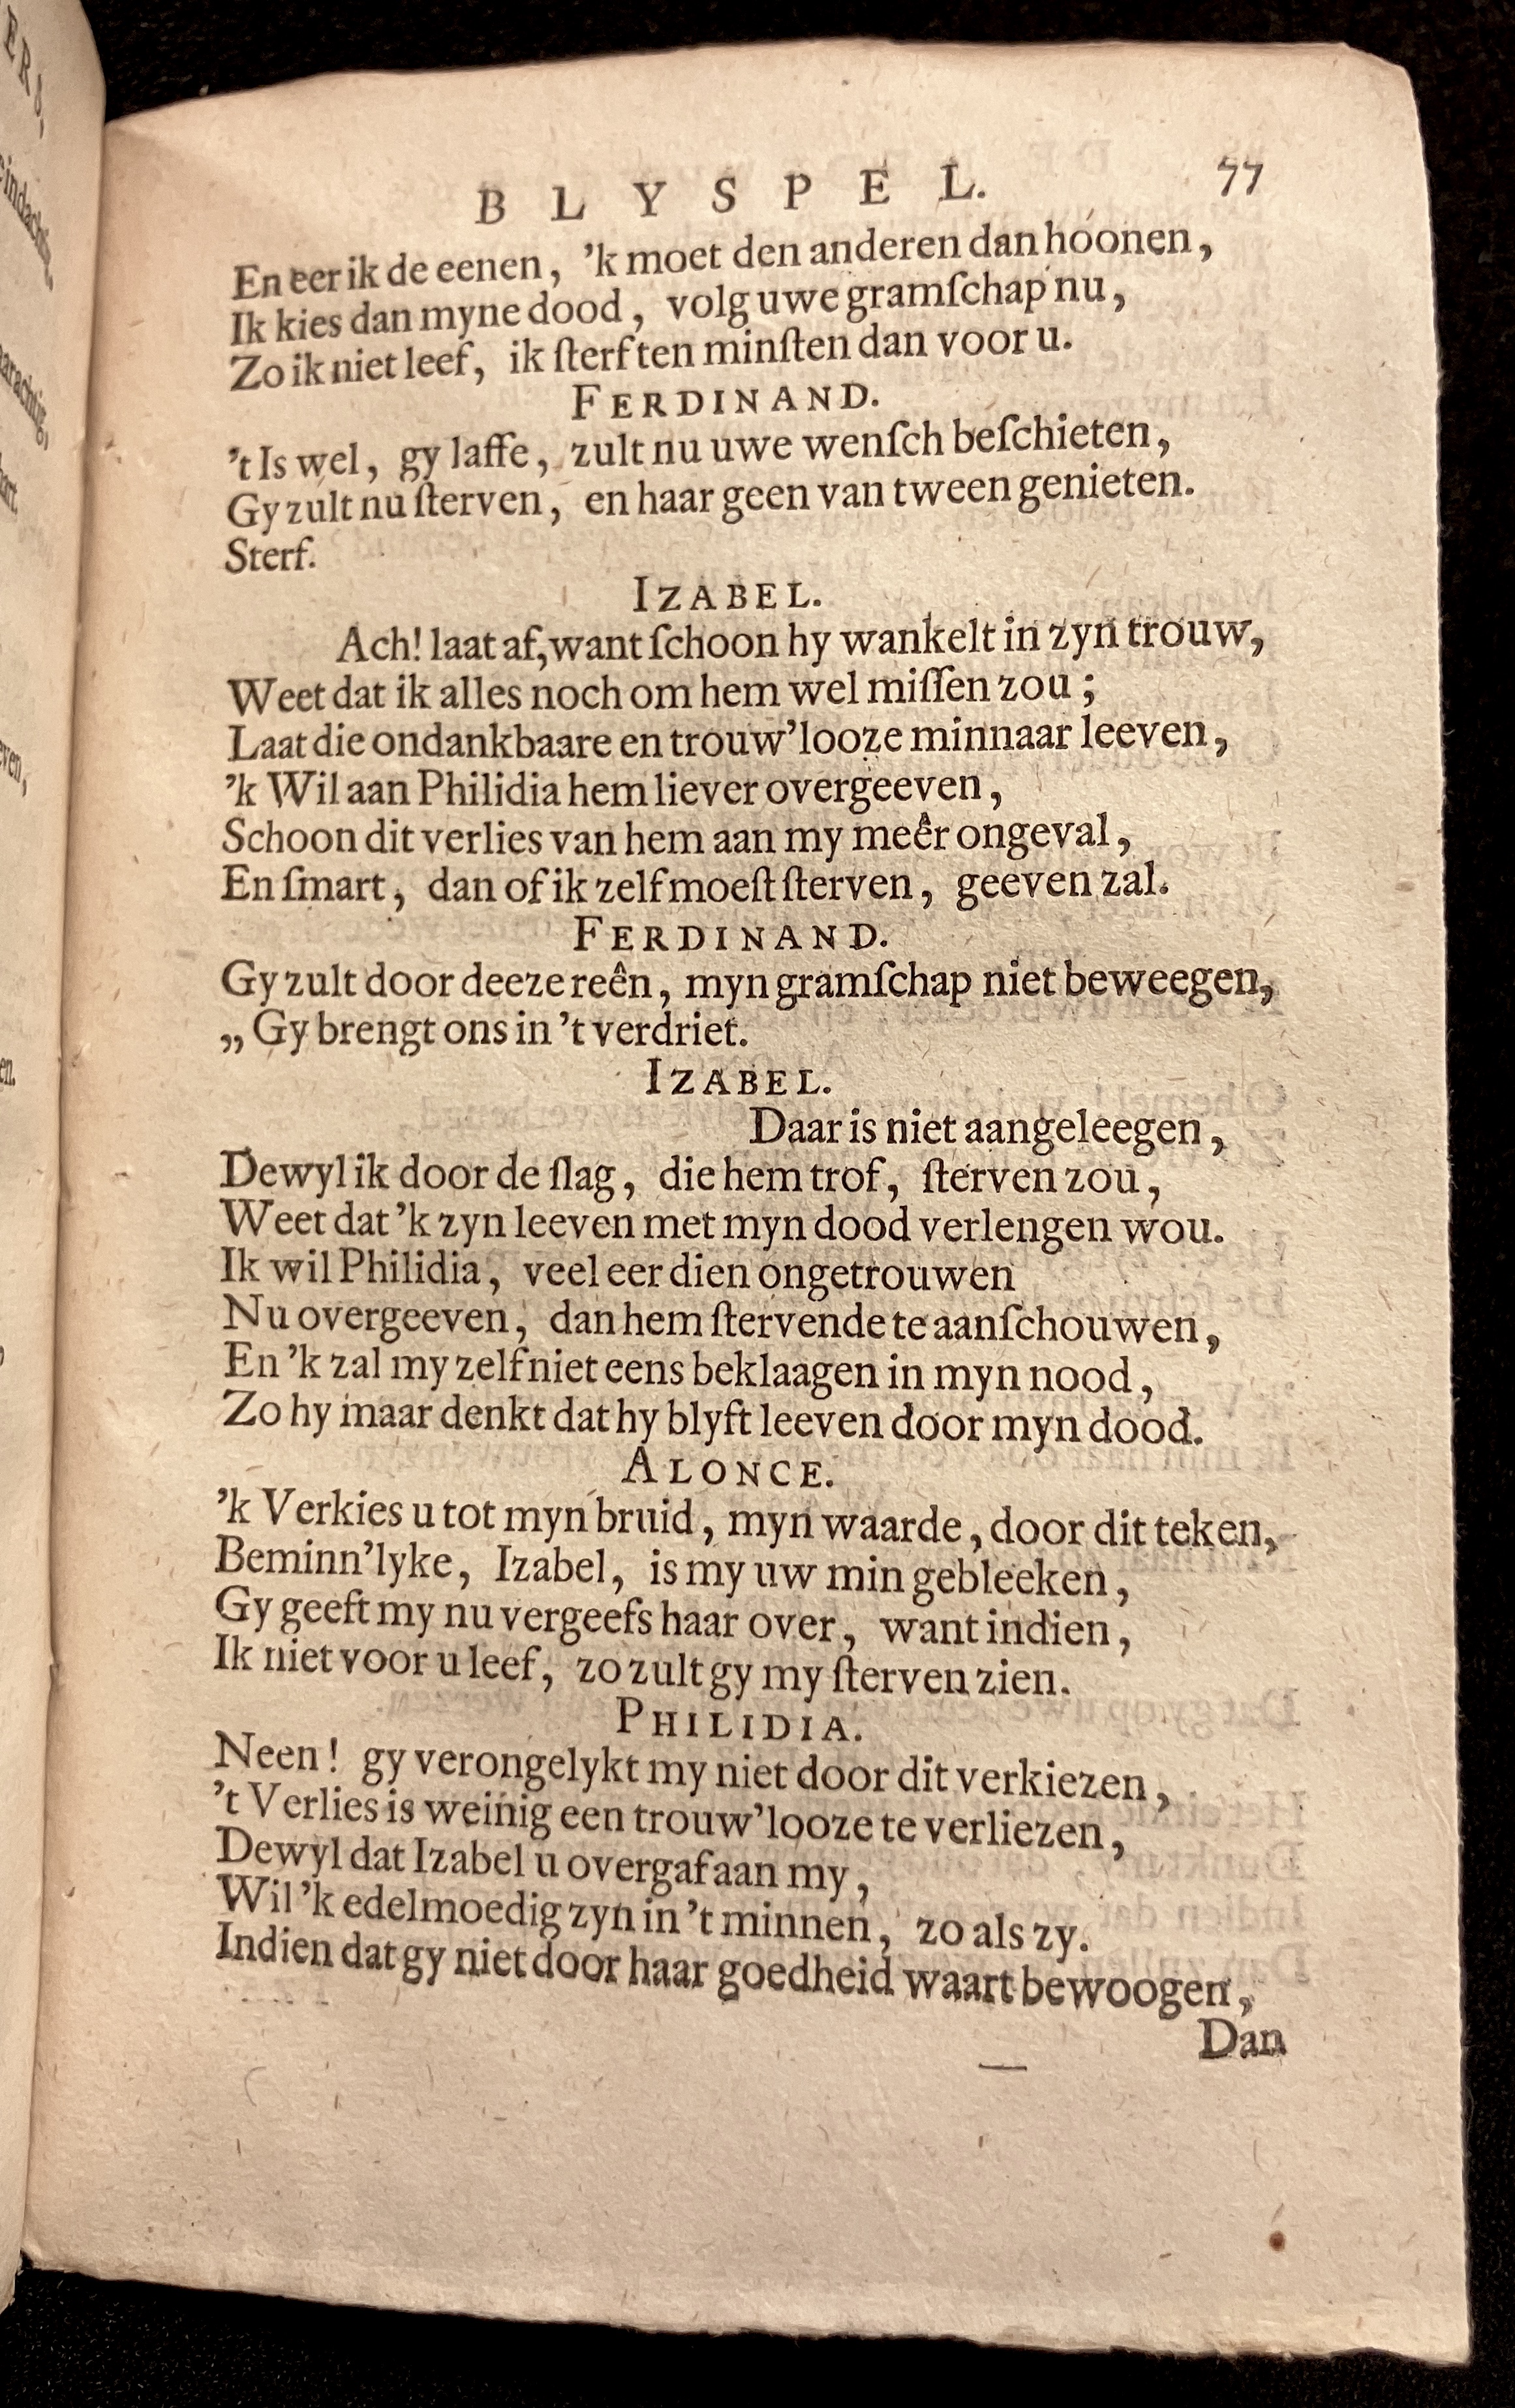 BLYSPEL. 77
En eer ik de eenen, 'k moet den anderen dan hoonen,
Ik kies dan myne dood, volg uwe gramſchap nu,
Zo ik niet leef, ik ſterf ten minſten dan voor u.
FERDINAND.
't Is wel, gy laffe, zult nu uwe wenſch beſchieten,
Gy zult nu ſterven, en haar geen van tween genieten.
Sterf.
IZABEL.
Ach! laat af, want ſchoon hy wankelt in zyn trouw,
Weet dat ik alles noch om hem wel miſſen zou;
Laat die ondankbaare en trouw'looze minnaar leeven,
'k Wil aan Philidia hem liever overgeeven,
Schoon dit verlies van hem aan my meêr ongeval,
En ſmart, dan of ik zelf moeſt ſterven, geeven zal.
FERDINAND.
Gy zult door deeze reên, myn gramſchap niet beweegen,
„ Gy brengt ons in 't verdriet.
IZABEL.
Daar is niet aangeleegen,
Dewyl ik door de ſlag, die hem trof, ſterven zou,
Weet dat 'k zyn leeven met myn dood verlengen wou.
Ik wil Philidia, veel eer dien ongetrouwen
Nu overgeeven, dan hem ſtervende te aanſchouwen,
En 'k zal my zelf niet eens beklaagen in myn nood,
Zo hy maar denkt dat hy blyft leeven door myn dood.
ALONCE.
'k Verkies u tot myn bruid, myn waarde, door dit teken,
Beminn'lyke, Izabel, is my uw min gebleeken,
Gy geeft my nu vergeefs haar over, want indien,
Ik niet voor u leef, zo zult gy my ſterven zien.
PHILIDIA.
Neen! gy verongelykt my niet door dit verkiezen,
't Verlies is weinig een trouw'looze te verliezen,
Dewyl dat Izabel u overgaf aan my,
Wil 'k edelmoedig zyn in 't minnen, zo als zy.
Indien dat gy niet door haar goedheid waart bewoogen,
Dan